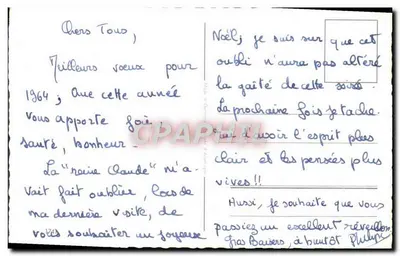 Chers Tous,
Meilleurs voeux pour
1964; Que cette année
vous apporte joie
santé, bonheur.
La "reine Claude" m'a-
vait fait oublier, lors de
ma dernière visite, de
vous souhaiter un joyeux
Noël; je suis sur que cet
oubli n'aura pas altéré
la gaîté de cette soirée.
La prochaine fois je tache-
rai d'avoir l'esprit plus
clair et les pensées plus
vives!!
Aussi, je souhaite que vous
passiez un excellent réveillon
Gros Baisers, à bientôt Philippe
cparama